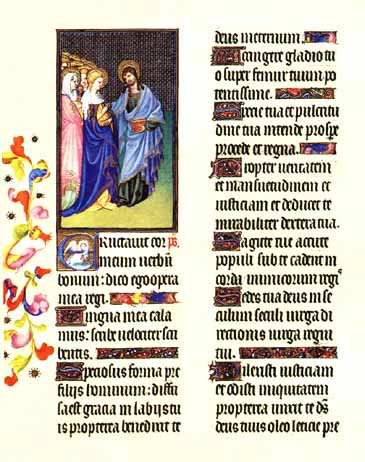 Eructauit cor ps.
meum uerbū
bonum: dico ego opera
mea regi.
Lingua mea cala
mus: scribe uelociter scri
bentis.
Speciosus forma pre
filijs hominum: diffu
sa est gratia in labijs tu
is propterea benedixit te
deus in eternum.
Accingere gladio tu
o super femur tuum po
tentissime.
Specie tua et pulcritu
dine tua intende prospe
procede et regna.
Propter ueritatem
et mansuetudinem et
iusticiam et deducet te
mirabiliter dextera tua.
Sagitte tue acute
populi sub te cadent in
corda inimicorum regꝭ
Sedes tua deus in se
culum seculi uirga di
rectionis uirga regni
tui.
Dilexisti iusticiam
et odisti iniquitatem
propterea unxit te dš
deus tuus oleo leticie pre